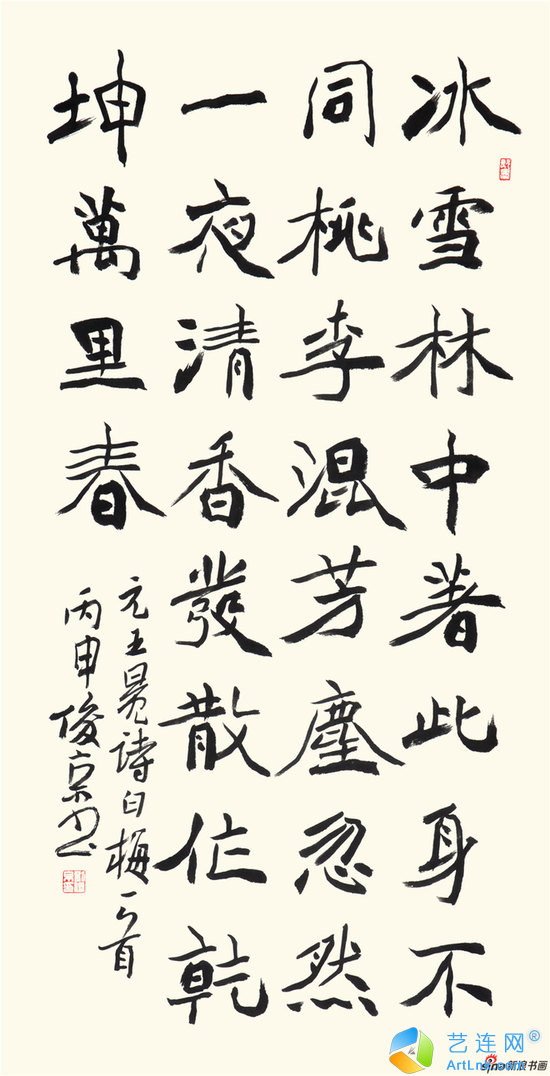 冰雪林中著此身不
同桃李混芳塵忽然
一夜清香發散作乾
坤萬里春
元王冕詩白梅一首
丙申俊京书
艺连网®
ArtLn
sina新浪书画